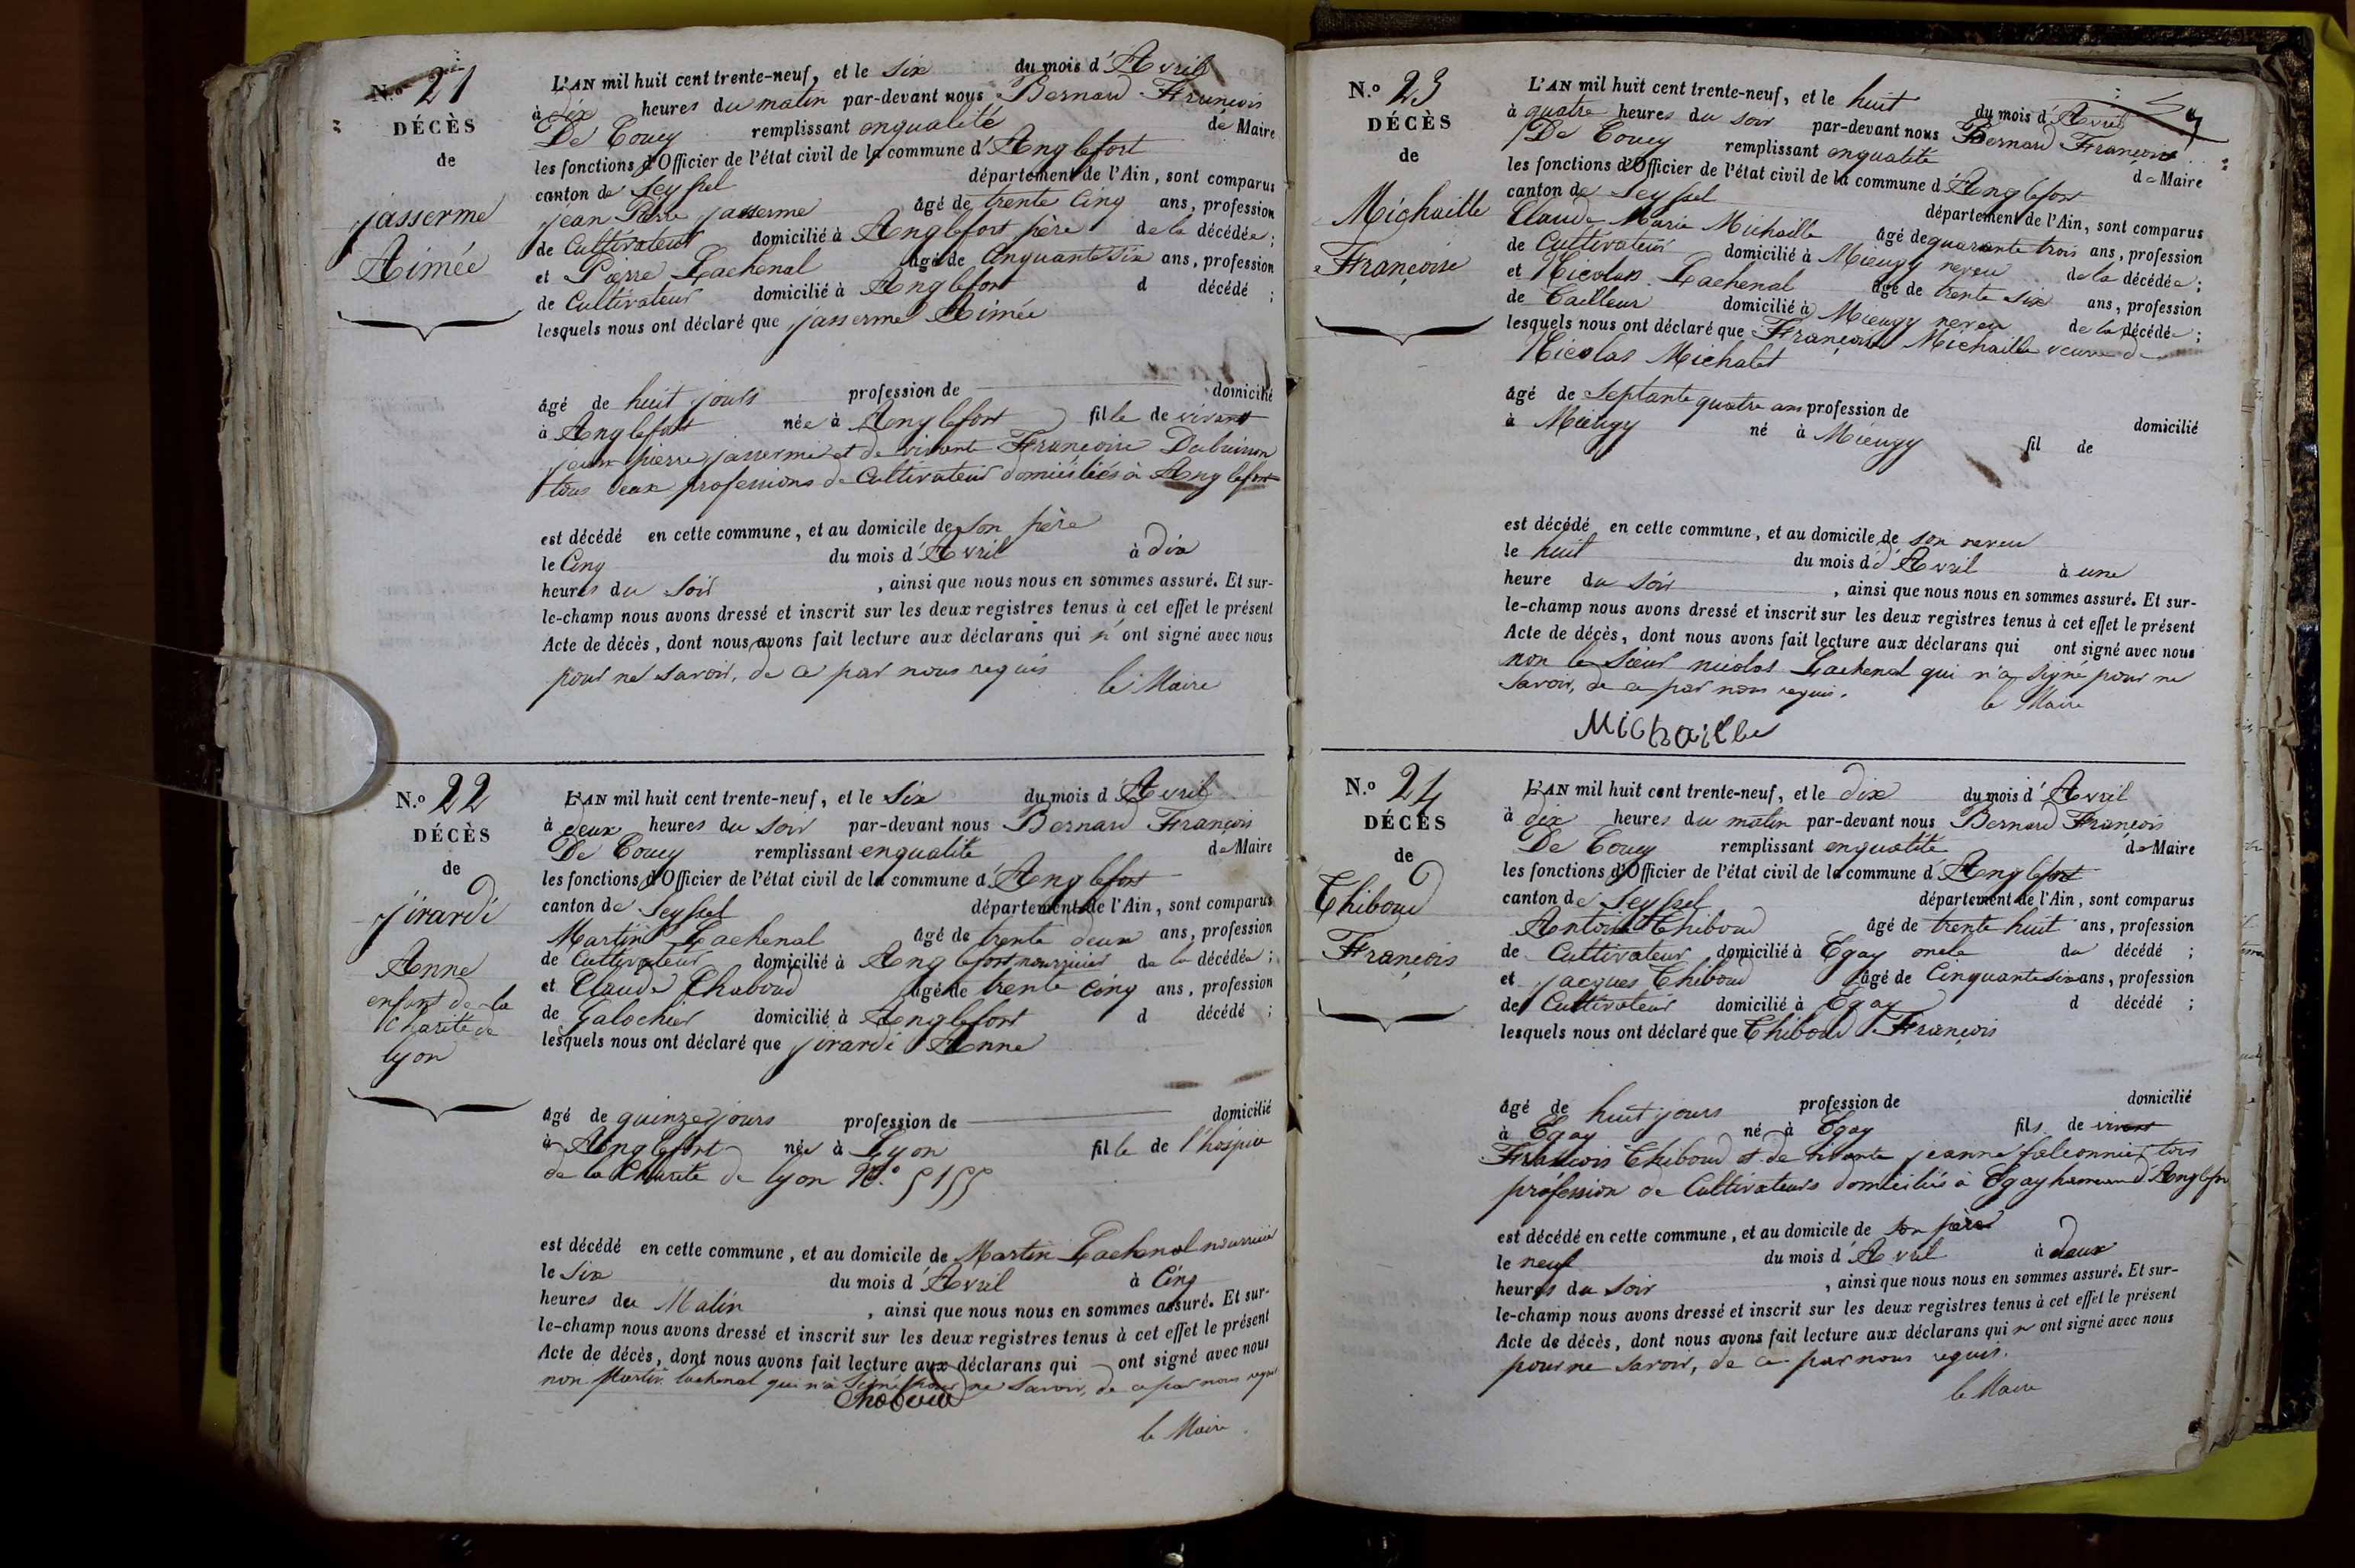 N.º 21
DÉCÈS
de
jasserme
Aimée
L'AN mil huit cent trente-neuf, et le Six du mois d'Avril
à dix heures du matin par-devant nous Bernard François
De Coucy remplissant en qualité de Maire
les fonctions d'Officier de l'état civil de la commune d'Anglefort
canton de Seyssel département de l'Ain, sont comparus
jean Pierre jasserme âgé de trente Cinq ans, profession
de Cultivateur domicilié à Anglefort père de la décédée;
et Pierre Lachenal âgé de Cinquante six ans, profession
de Cultivateur domicilié à Anglefort d décédé ;
lesquels nous ont déclaré que jasserme Aimée
âgé de huit jours profession de domicilié
à Anglefort née à Anglefort fille de vivant
jean pierre jasserme et de vivante Françoise Dubuisson
tous deux professions de Cultivateur domiciliés à Anglefort
est décédé en cette commune, et au domicile de son père
le Cinq du mois d'Avril à dix
heures du Soir , ainsi que nous nous en sommes assuré. Et sur-
le-champ nous avons dressé et inscrit sur les deux registres tenus à cet effet le présent
Acte de décès, dont nous avons fait lecture aux déclarans qui n'ont signé avec nous
pour ne savoir, de ce par nous requis
le Maire
N.º 22
DÉCÈS
de
jirardi
Anne
enfant de la
Charité de
lyon
L'AN mil huit cent trente-neuf, et le Six du mois d'Avril
à deux heures du soir par-devant nous Bernard François
De Coucy remplissant en qualité de Maire
les fonctions d'Officier de l'état civil de la commune d'Anglefort
canton de Seyssel département de l'Ain, sont comparus
Martin Lachenal âgé de trente deux ans, profession
de Cultivateur domicilié à Anglefort nourricier de la décédée;
et Claude Chaboud âgé de trente Cinq ans, profession
de Galochier domicilié à Anglefort d décédé ;
lesquels nous ont déclaré que jirardi Anne
âgé de quinze jours profession de domicilié
à Anglefort née à Lyon fille de l'hospice
de la Charité de lyon N.º 5155
est décédé en cette commune, et au domicile de Martin Lachenal nourricier
le Six du mois d'Avril à Cinq
heures du Matin , ainsi que nous nous en sommes assuré. Et sur-
le-champ nous avons dressé et inscrit sur les deux registres tenus à cet effet le présent
Acte de décès, dont nous avons fait lecture aux déclarans qui ont signé avec nous
non Martin lachenal qui n'a signé pour ne savoir, de ce par nous requis
Chaboud
le Maire
N.º 23
DÉCÈS
de
Michaille
Françoise
L'AN mil huit cent trente-neuf, et le huit du mois d'Avril
à quatre heures du soir par-devant nous Bernard François
De Coucy remplissant en qualité de Maire
les fonctions d'Officier de l'état civil de la commune d'Anglefort
canton de Seyssel département de l'Ain, sont comparus
Claude Marie Michaille âgé de quarante trois ans, profession
de Cultivateur domicilié à Mieugy neveu de la décédée;
et Nicolas Lachenal âgé de trente six ans, profession
de Tailleur domicilié à Mieugy neveu de la décédée;
lesquels nous ont déclaré que Françoise Michaille veuve de
Nicolas Michalet
âgé de Septante quatre ans profession de domicilié
à Mieugy né à Mieugy fil de
est décédé en cette commune, et au domicile de son neveu
le huit du mois d'Avril à une
heure du Soir , ainsi que nous nous en sommes assuré. Et sur-
le-champ nous avons dressé et inscrit sur les deux registres tenus à cet effet le présent
Acte de décès, dont nous avons fait lecture aux déclarans qui ont signé avec nous
non le Sieur nicolas Lachenal qui n'a signé pour ne
savoir, de ce par nous requis.
le Maire
Michaille
N.º 24
DÉCÈS
de
Thiboud
François
L'AN mil huit cent trente-neuf, et le dix du mois d'Avril
à dix heures du matin par-devant nous Bernard François
De Coucy remplissant en qualité de Maire
les fonctions d'Officier de l'état civil de la commune d'Anglefort
canton de Seyssel département de l'Ain, sont comparus
Antoine Thiboud âgé de trente huit ans, profession
de Cultivateur domicilié à Egay oncle du décédé ;
et jacques Thiboud âgé de Cinquante six ans, profession
de Cultivateur domicilié à Egay d décédé ;
lesquels nous ont déclaré que Thiboud François
âgé de huit jours profession de domicilié
à Egay né à Egay fils de vivant
François Thiboud et de vivante jeanne falconnier tous
profession de Cultivateurs domiciliés à Egay hameau d'Anglefort
est décédé en cette commune, et au domicile de son père
le neuf du mois d'Avril à deux
heures du soir , ainsi que nous nous en sommes assuré. Et sur-
le-champ nous avons dressé et inscrit sur les deux registres tenus à cet effet le présent
Acte de décès, dont nous avons fait lecture aux déclarans qui n'ont signé avec nous
pour ne savoir, de ce par nous requis.
le Maire